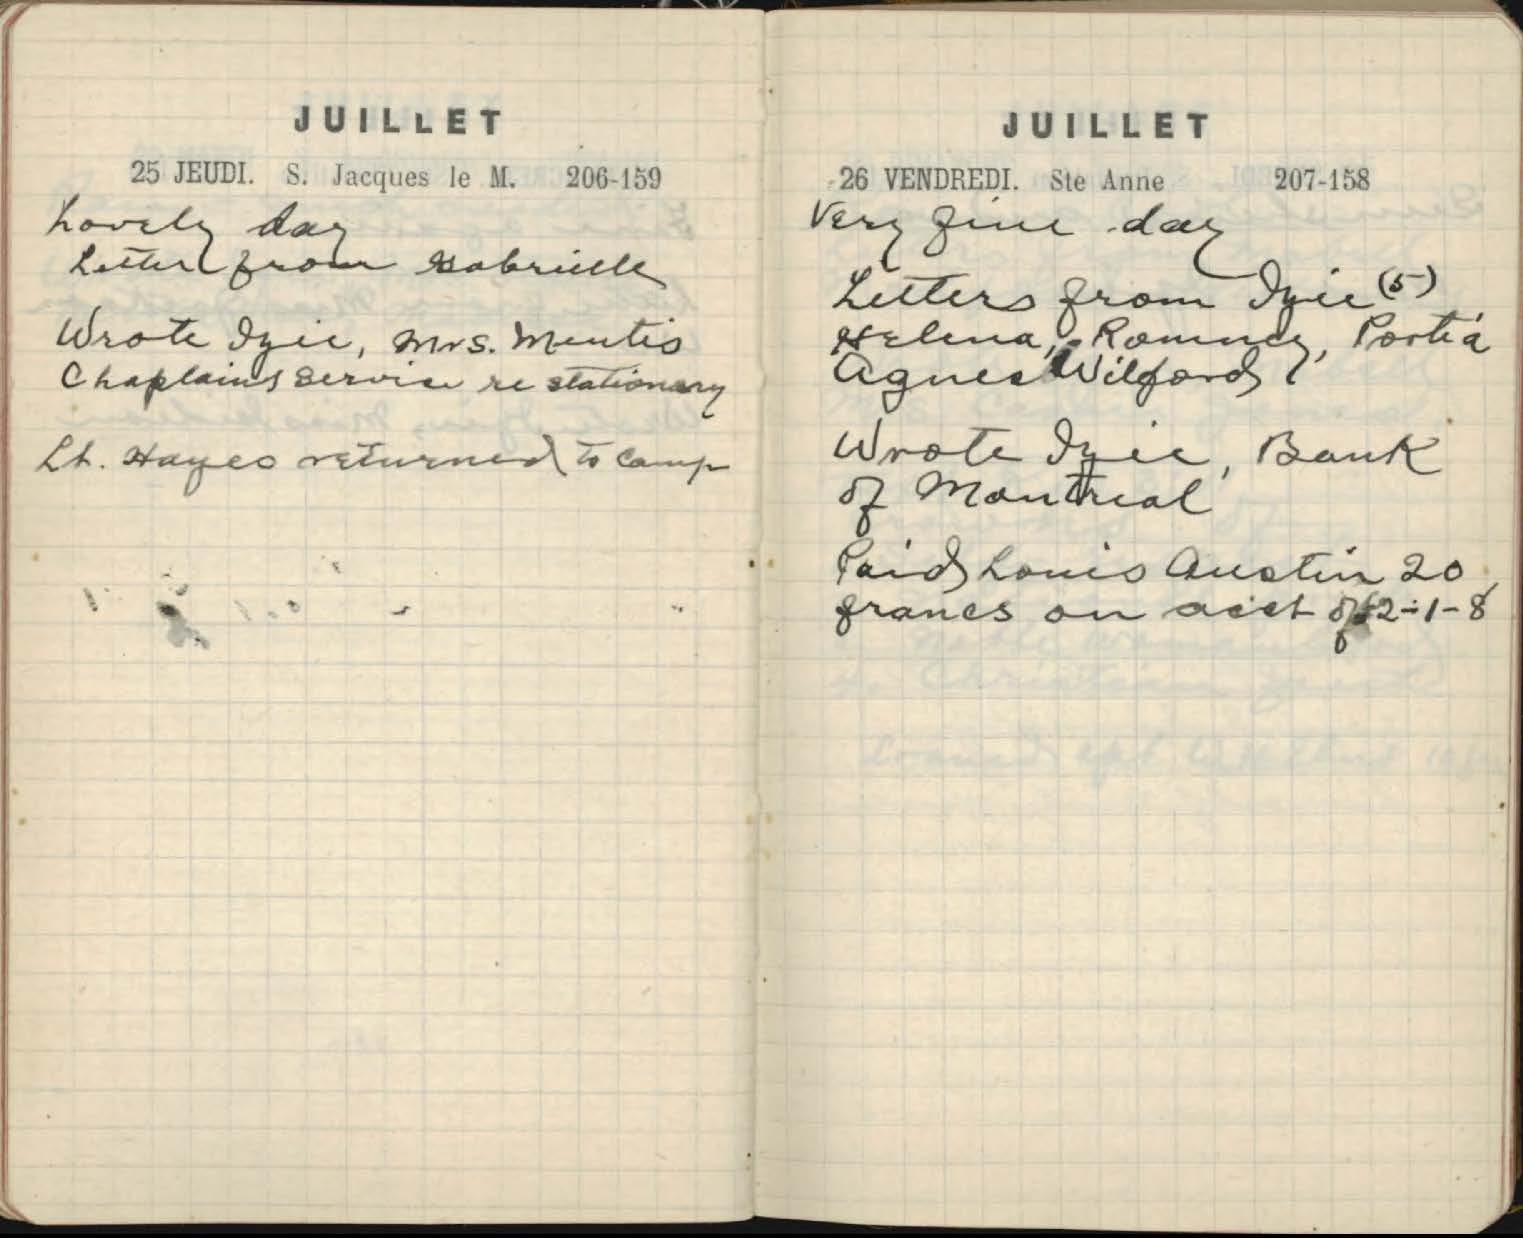 JUILLET
25 JEUDI. S. Jacques le M. 206-159
Lovely day
Letter from Gabrielle
Wrote Izie, Mrs. Mentis
Chaplains Service re stationary
Lt. Hayes returned to Camp
JUILLET
26 VENDREDI. Ste Anne 207-158
Very fine day
Letters from Izie (5)
Helena, Romney, Portia
Agnes Wilford
Wrote Izie, Bank
of Montreal
Paid Louis Austin 20
francs on acct of 2-1-8